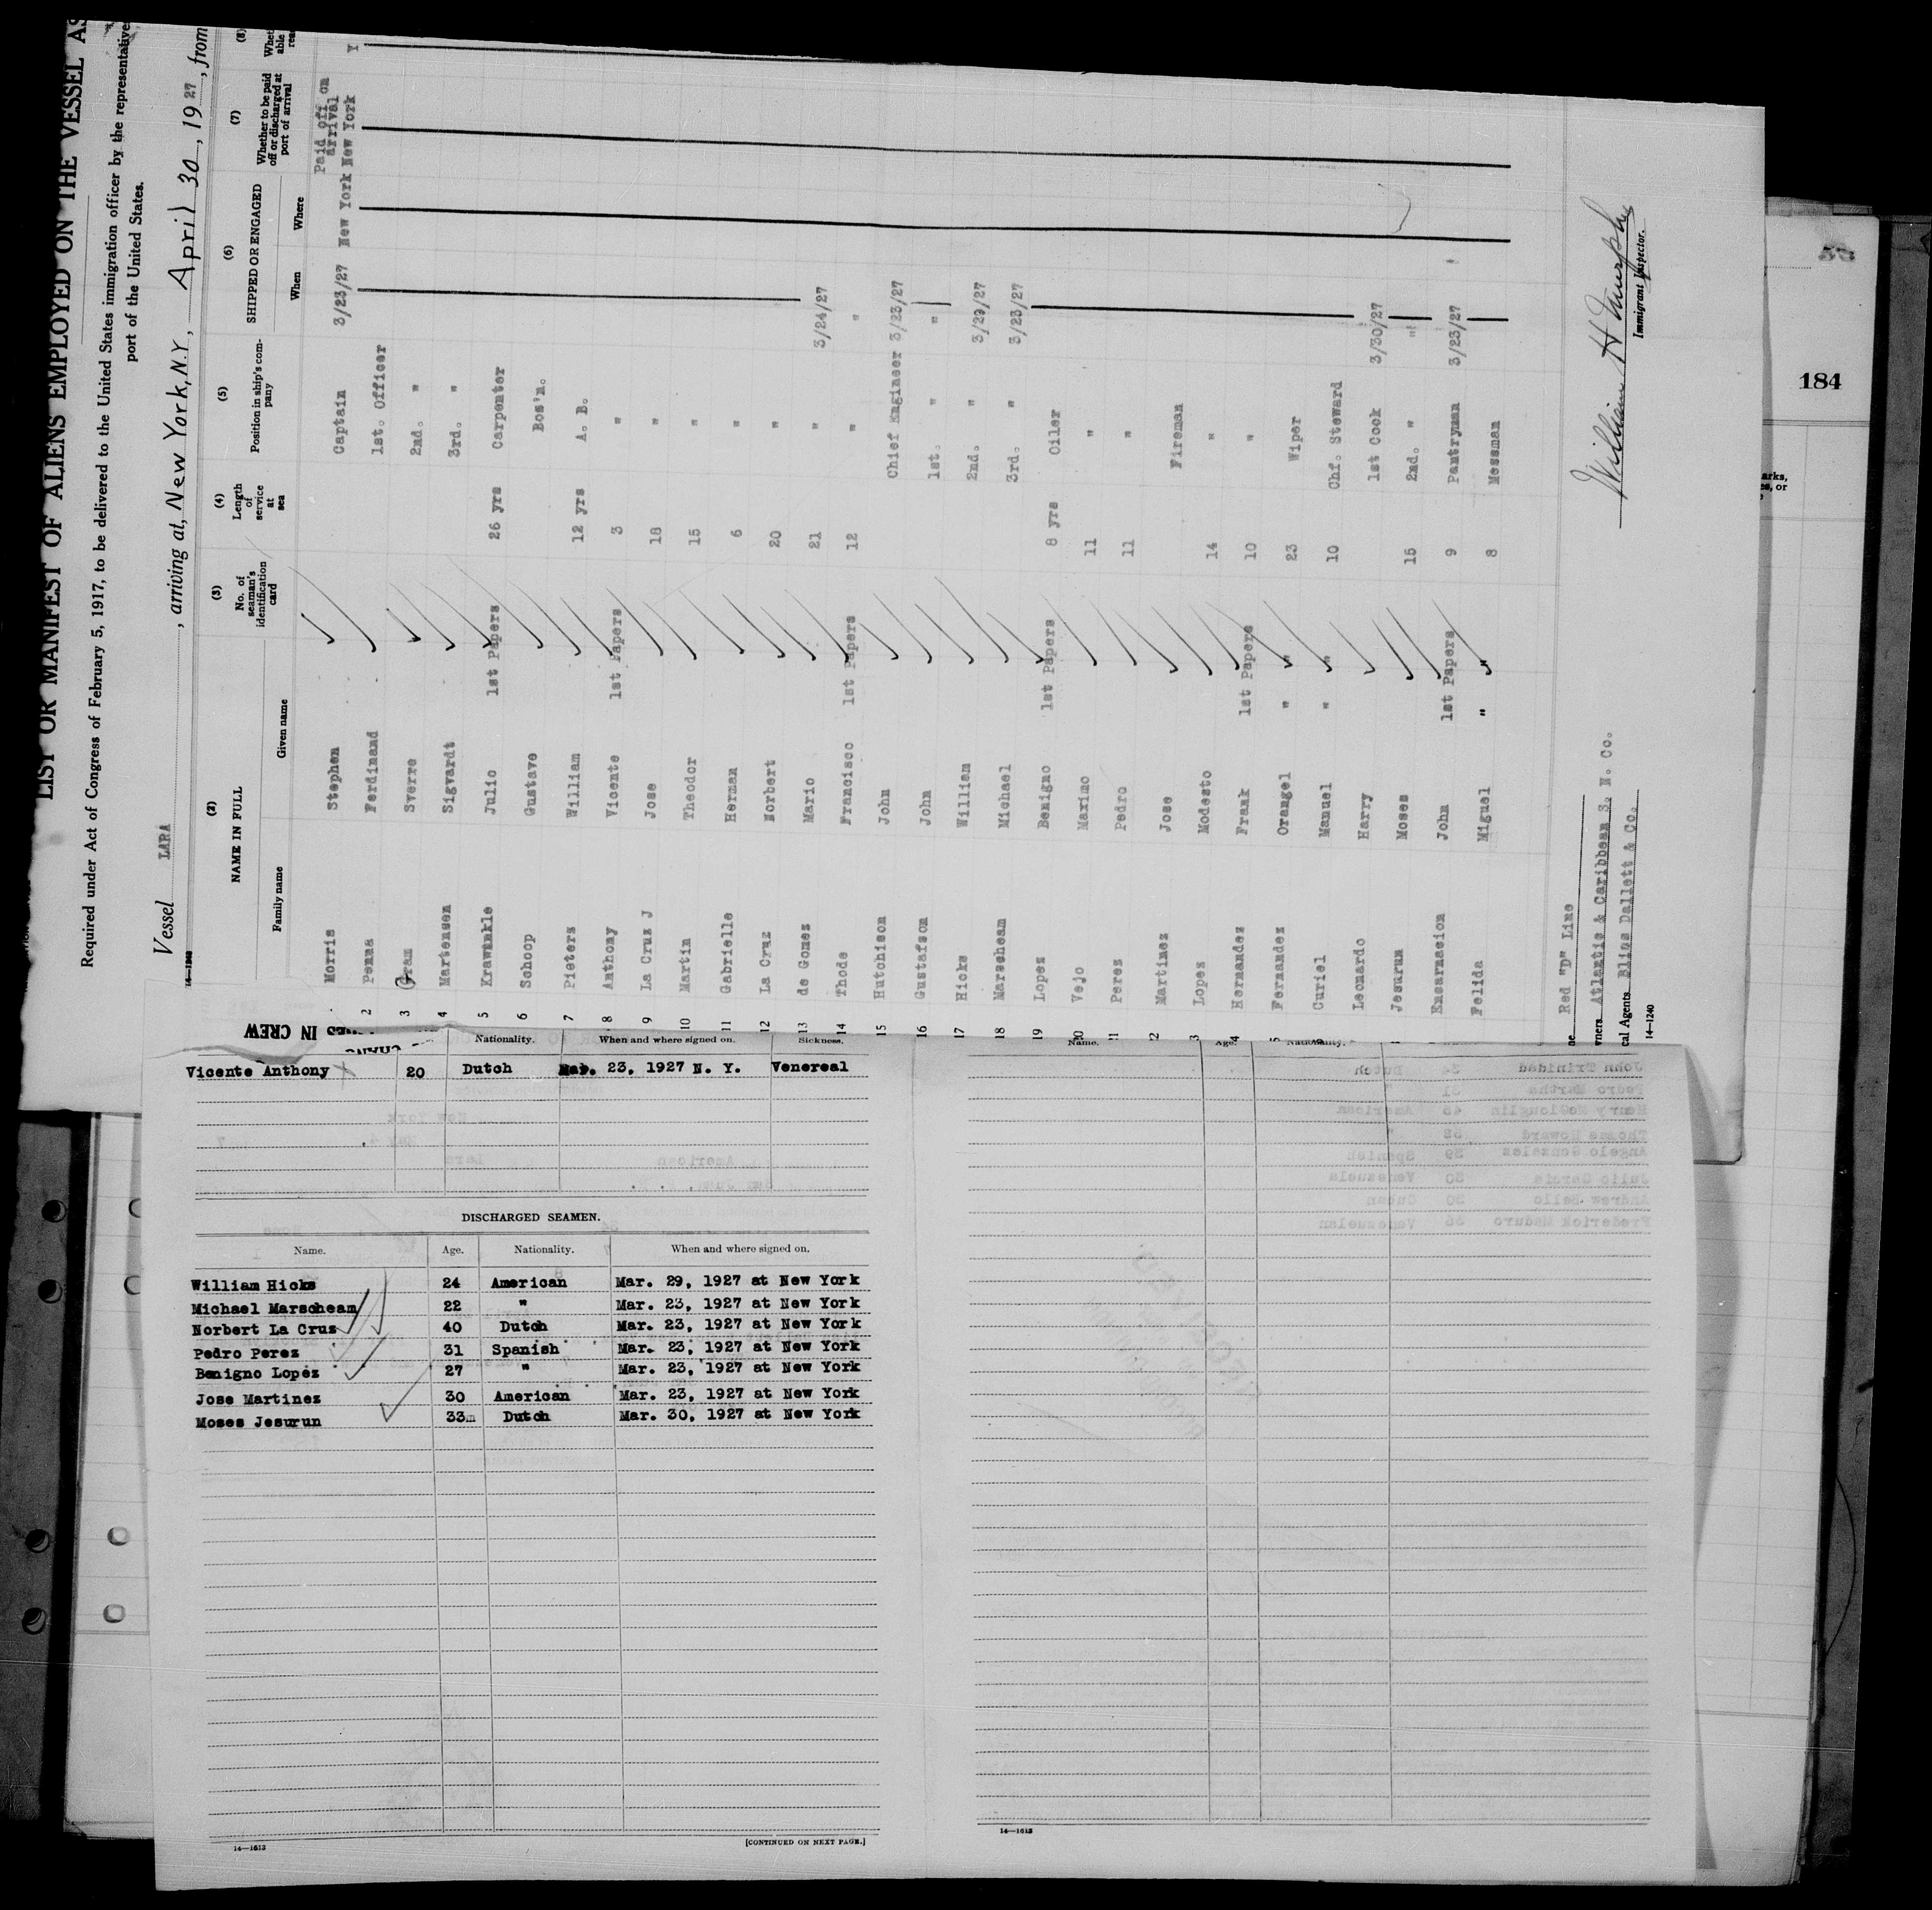 LIST OR MANIFEST OF ALIENS EMPLOYED ON THE VESSEL AS
Required under Act of Congress of February 5, 1917, to be delivered to the United States immigration officer by the representative
port of the United States.
Vessel LARA, arriving at, New York, N.Y., April 30, 1927, from
14-1240
(2) (3) (4) (5) (6) (7) (8)
NAME IN FULL No. of seaman's identification card Length of service at sea Position in ship's company SHIPPED OR ENGAGED Whether to be paid off or discharged at port of arrival
Family name Given name When Where
Paid off on arrival
Morris Stephen Captain 3/23/27 New York New York Y
2 Penna Ferdinand 1st. Officer
3 Gram Sverre 2nd. "
4 Martensen Sigvardt 3rd. "
5 Krawinkle Julio 1st Papers 26 yrs Carpenter
6 Schoop Gustave Bos'n.
7 Pieters William 12 yrs A. B.
8 Anthony Vicente 1st Papers 3 "
9 La Cruz J Jose 18 "
10 Martin Theodor 15 "
11 Gabrielle Herman 6 "
12 La Cruz Norbert 20 "
13 de Gomez Mario 21 " 3/24/27
14 Thode Francisco 1st Papers 12 " "
15 Hutchison John Chief Engineer 3/23/27
16 Gustafson John 1st. " "
17 Hicks William 2nd. " 3/29/27
18 Marscheam Michael 3rd. " 3/23/27
19 Lopez Benigno 1st Papers 8 yrs Oiler
20 Vejo Maximo 11 "
11 Perez Pedro 11 "
2 Martinez Jose Fireman
3 Lopez Modesto 14 "
4 Hernandez Frank 1st Papers 10 "
5 Fernandez Orangel " " 23 Wiper
Curiel Manuel " " 10 Chf. Steward
Leonardo Harry 1st Cook 3/30/27
Jesurun Moses 15 2nd. " "
Encarnacion John 1st Papers 9 Pantryman 3/23/27
Felida Miguel " " 8 Messman
Red "D" Line
wners Atlantic & Caribbean S. N. Co.
cal Agents Bliss Dallett & Co.
14-1240
William H Murphy
Immigrant Inspector.
184
arks,
es, or
IN CREW
Nationality. When and where signed on. Sickness.
Vicente Anthony 20 Dutch Mar. 23, 1927 N. Y. Venereal
DISCHARGED SEAMEN.
Name. Age. Nationality. When and where signed on.
William Hicks 24 American Mar. 29, 1927 at New York
Michael Marscheam 22 " Mar. 23, 1927 at New York
Norbert La Cruz 40 Dutch Mar. 23, 1927 at New York
Pedro Perez 31 Spanish Mar. 23, 1927 at New York
Benigno Lopez 27 " Mar. 23, 1927 at New York
Jose Martinez 30 American Mar. 23, 1927 at New York
Moses Jesurun 33m Dutch Mar. 30, 1927 at New York
14-1613
[CONTINUED ON NEXT PAGE.]
Name. Age. Nationality.
John Trinidad 34 Dutch
Pedro Martha 31 "
Henry McCloughlin 45 American
Thomas Howard 52 "
Angelo Gonzales 39 Spanish
Julio Garcia 30 Venezuela
Andrew Bello 30 Cuban
Frederick Maduro 36 Venezuelan
14-1613